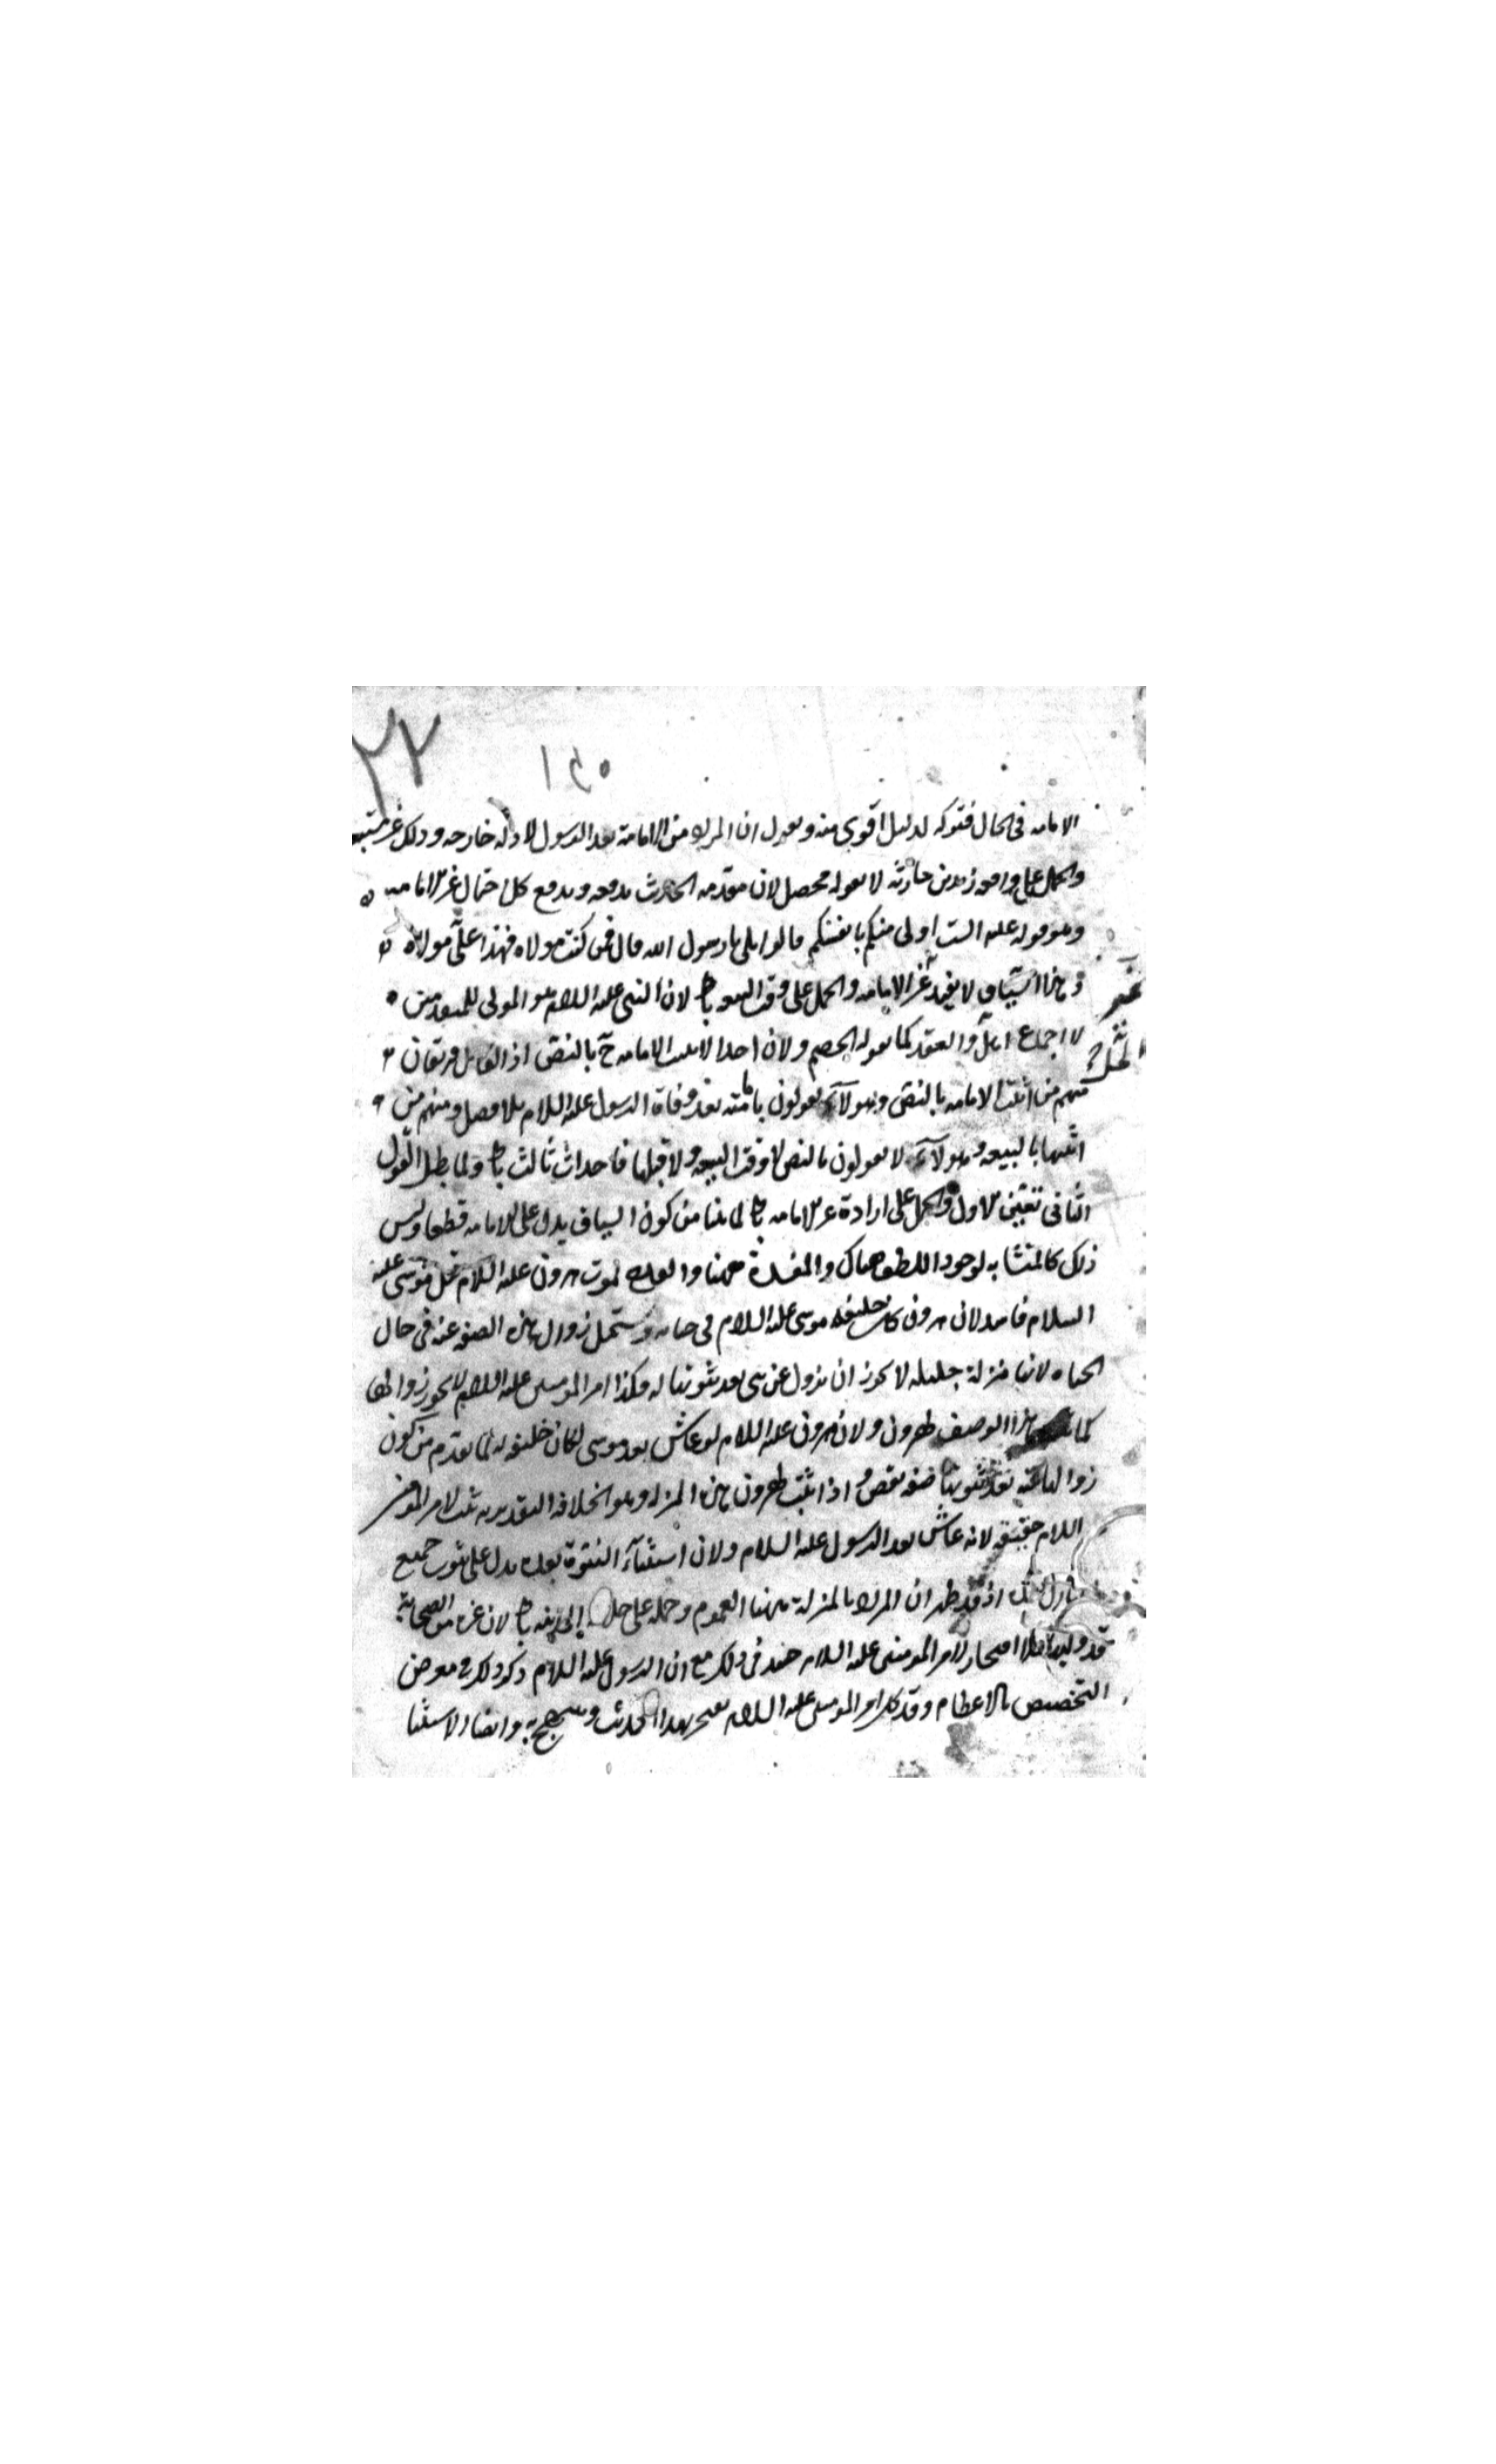 ٢٢
١٥٠
الامامه فى الحال فتركه لدليل اقوى منه ونعول ان المراد من الامامة بعد الرسول لادلة خارجه وذلك غر
والحمل على واقعه زيد بن حارثه لا يقوله محصل لان مقدمه الحديث يدفعه ويدفع كل احتمال غير الامامه
وهو قوله عليه الست اولى منكم بانفسكم قالوا بلى يا رسول الله قال فمن كنت مولاه فهذا على مولاه
وهذا السياق لا يفيد غير الامامه والحمل على وقت البيعه باط لان النبى عليه السلام هو المولى للمتقدمين
غير
الثلاثة
لا اجماع اهل والعقد كما يقوله الخصم ولان احدا لا يثبت الامامه ح بالنص اذ القايل فريقان
منهم من اثبت الامامه بالنص وهولآء يقولون بامامته بعد وفاة الرسول عليه السلام بلا فصل ومنهم من
اثبتها بالبيعه وهولآء لا يقولون بالنص لا وقت البيعه ولا قبلها فاحداث ثالث باط ولما بطل القول
الثانى تعين الاول والحمل على ارادة غير الامامه باط لما بينا من كون السياق يدل على الامامه قطعا وليس
ذلك كالمتشابه لوجود اللطف هناك والمفسدة ههنا والقدح بموت هرون عليه السلام قبل موسى عليه
السلام فاسد لان هرون كان خليفه موسى عليه السلام فى حياته ويستحيل زوال هذه الصفه عنه فى حال
الحياه لانها منزلة جليله لا يجوز ان يزول عن نبى بعد ثبوتها له وكذا امير المومنين عليه السلام لا يجوز زوالها
كما هذا الوصف لهرون ولان هرون عليه السلام لو عاش بعد موسى لكان خليفه له لما تقدم من كون
زوال بعد ثبوتها صفه نقص واذا ثبت لهرون هذه المنزله وهو الخلافه التقديريه ثبت لامير المومنين
السلام حقيقه لانه عاش بعد الرسول عليه السلام ولان استثنآء النبوة بعده يدل على ثبوت جميع
اذ قد ظهر ان المراد بالمنزلة ههنا العموم وحمله على المدينه باط لان غيره من الصحابة
قد فلا اختصاص لامير المومنين عليه السلام حينئذ فى ذلك مع ان الرسول عليه السلام ذكر ذلك فى معرض
التخصيص بالاعظام وقد كان امير المومنين عليه السلام يفتخر بهذا الحديث ويحتج به وايضا الاستثنا